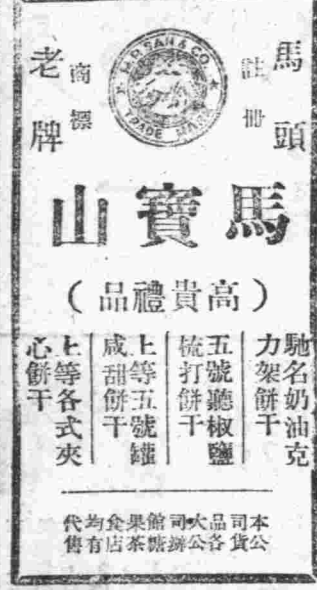 馬頭
註冊
M.P.SAN & CO.
TRADE MARK
商標
老牌
馬寶山
(高貴禮品)
馳名奶油克
力架餅干
五號廳椒鹽
梳打餅干
上等五號罐
咸甜餅干
上等各式夾
心餅干
本公司貨品各大公司辦館糖果茶食店均有代售